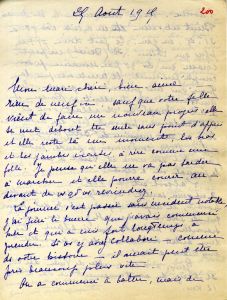 25 Août 19
200
Mon mari chéri, bien aimé
Rien de neuf ici sauf que votre fille
vient de faire un nouveau progrès elle
se met debout toute seule sans point d'appui
et elle reste là un moment, les bras
et les jambes écartés, à rire comme une
folle. Je pense qu'elle ne va pas tarder
à marcher et elle pourra courir au
devant de vous quand vous reviendrez.
La journée s'est passée sans incident notable
j'ai fini le beurre que j'avais commencé
hier et qui a mis fort longtemps à
prendre. Si vous y aviez collaboré comme
de votre dernière il aurait peut être
fait beaucoup plus vite.
On a commencé à battre, mais de